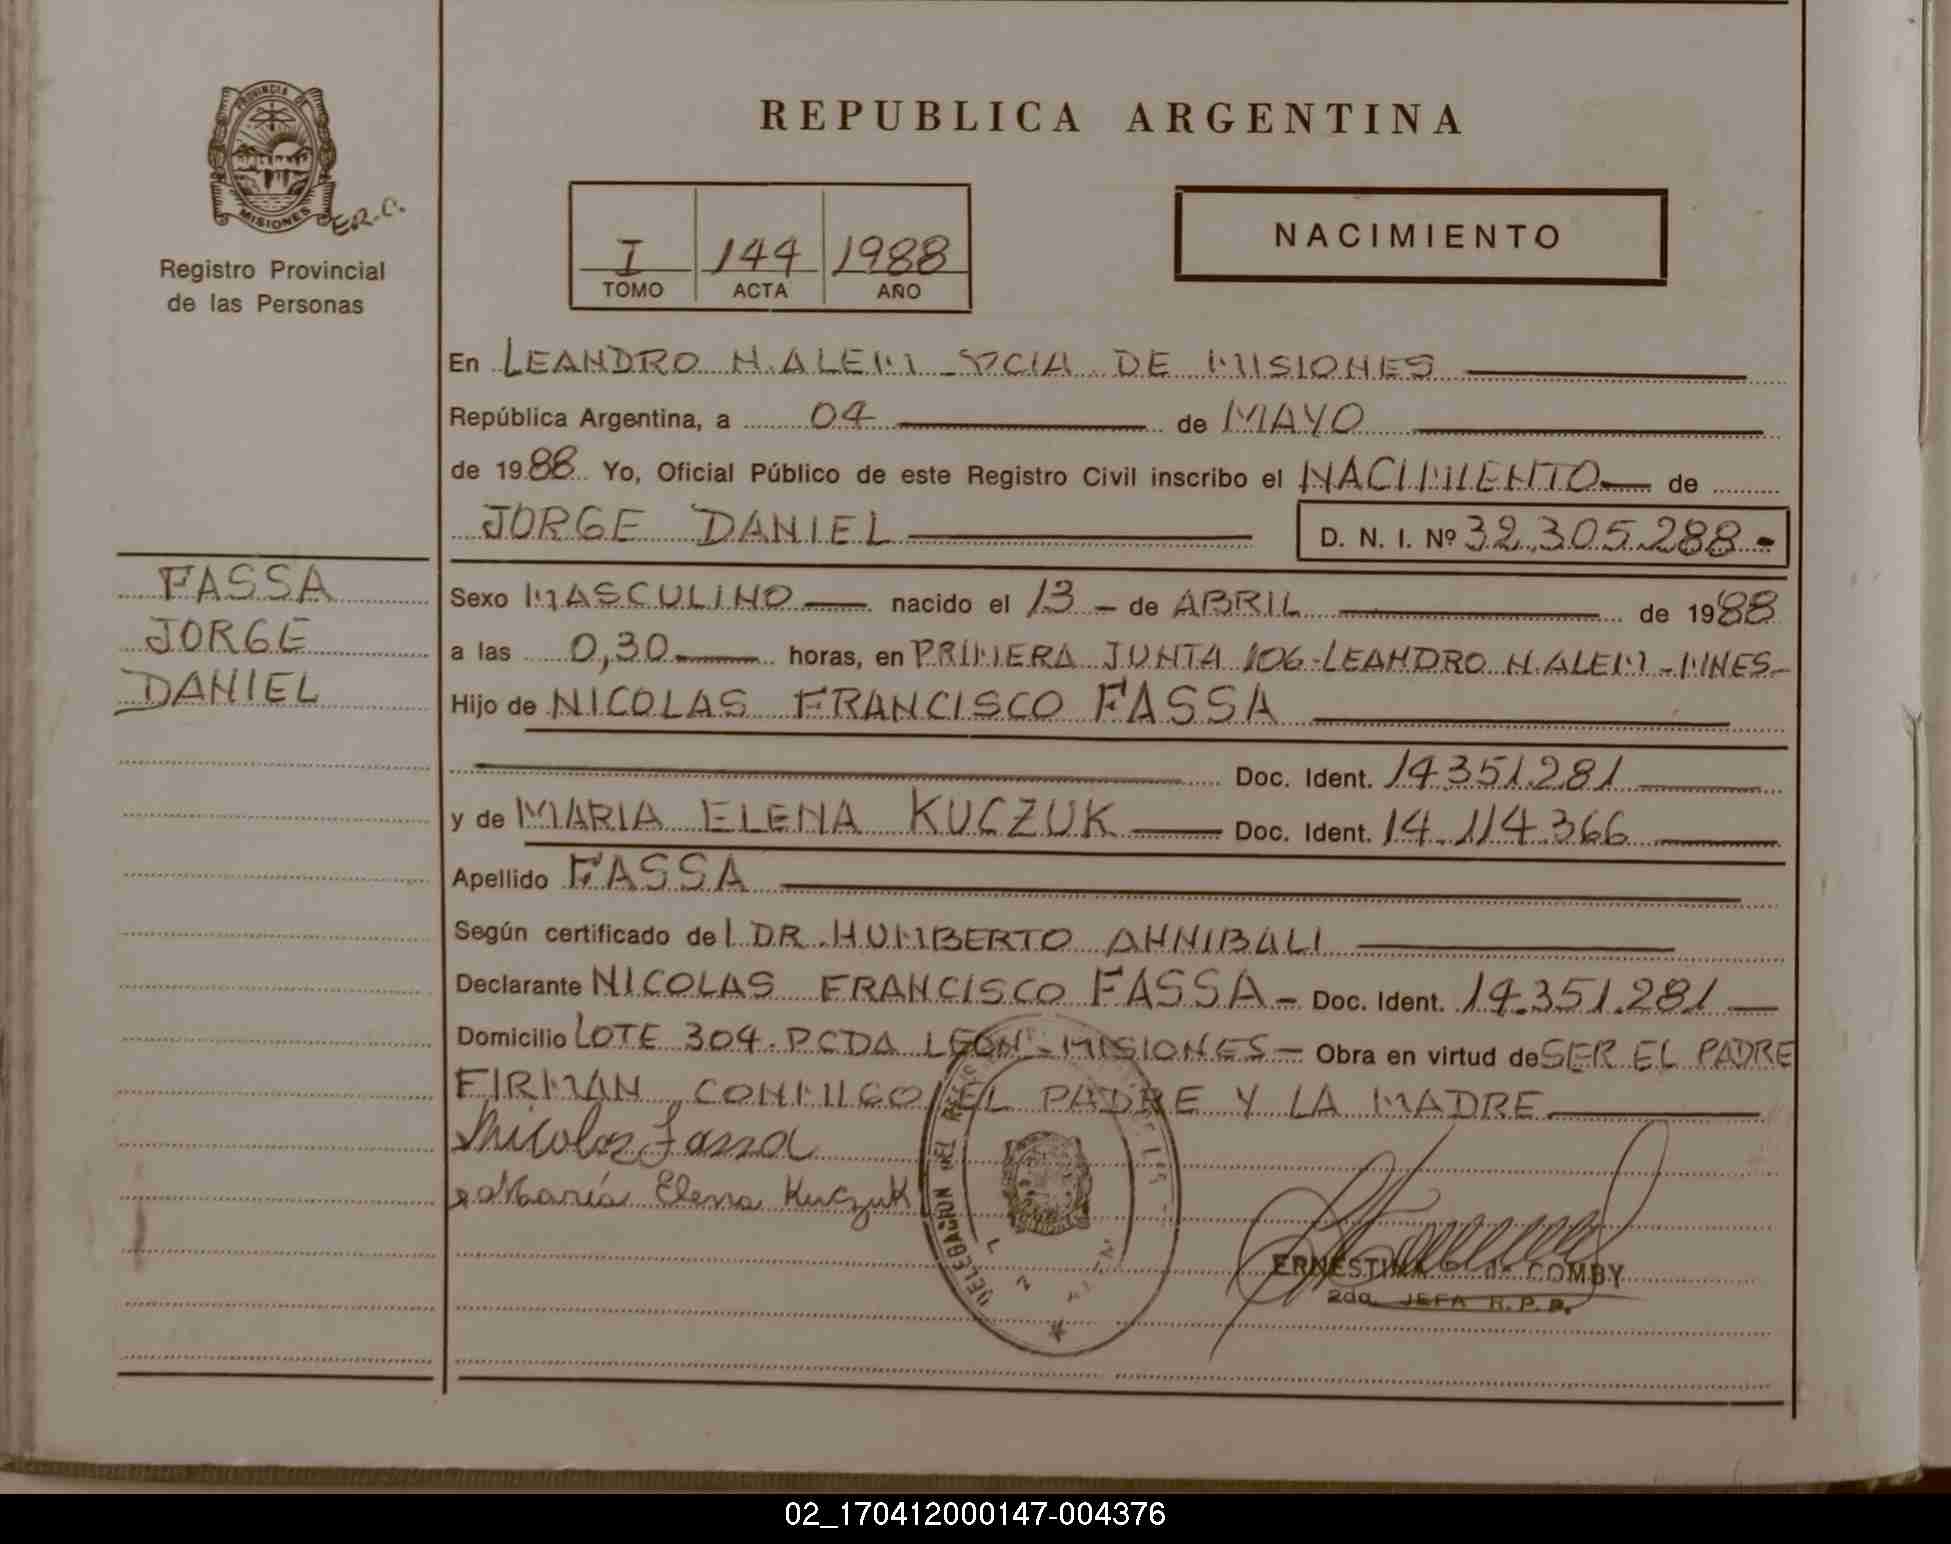 PROVINCIA DE
MISIONES
E.R.C.
Registro Provincial
de las Personas
REPUBLICA ARGENTINA
I 144 1988
TOMO ACTA AÑO
NACIMIENTO
En LEANDRO N. ALEM - PCIA DE MISIONES
República Argentina, a 04 de MAYO
de 1988 Yo, Oficial Público de este Registro Civil inscribo el NACIMIENTO de
JORGE DANIEL D. N. I. Nº 32.305.288-
FASSA
JORGE
DANIEL
Sexo MASCULINO nacido el 13 - de ABRIL de 1988
a las 0,30 horas, en PRIMERA JUNTA 106-LEANDRO N. ALEM - MNES-
Hijo de NICOLAS FRANCISCO FASSA
Doc. Ident. 14.351.281
y de MARIA ELENA KUCZUK Doc. Ident. 14.114.366
Apellido FASSA
Según certificado del DR. HUMBERTO ANNIBALI
Declarante NICOLAS FRANCISCO FASSA - Doc. Ident. 14.351.281
Domicilio LOTE 304. PCDA LEON - MISIONES - Obra en virtud de SER EL PADRE
FIRMAN CONMIGO EL PADRE Y LA MADRE
Nicolas Fassa
Maria Elena Kuczuk
DELEGACION DEL
ERNESTINA de COMBY
2da. JEFA R. P. P.
02_170412000147-004376